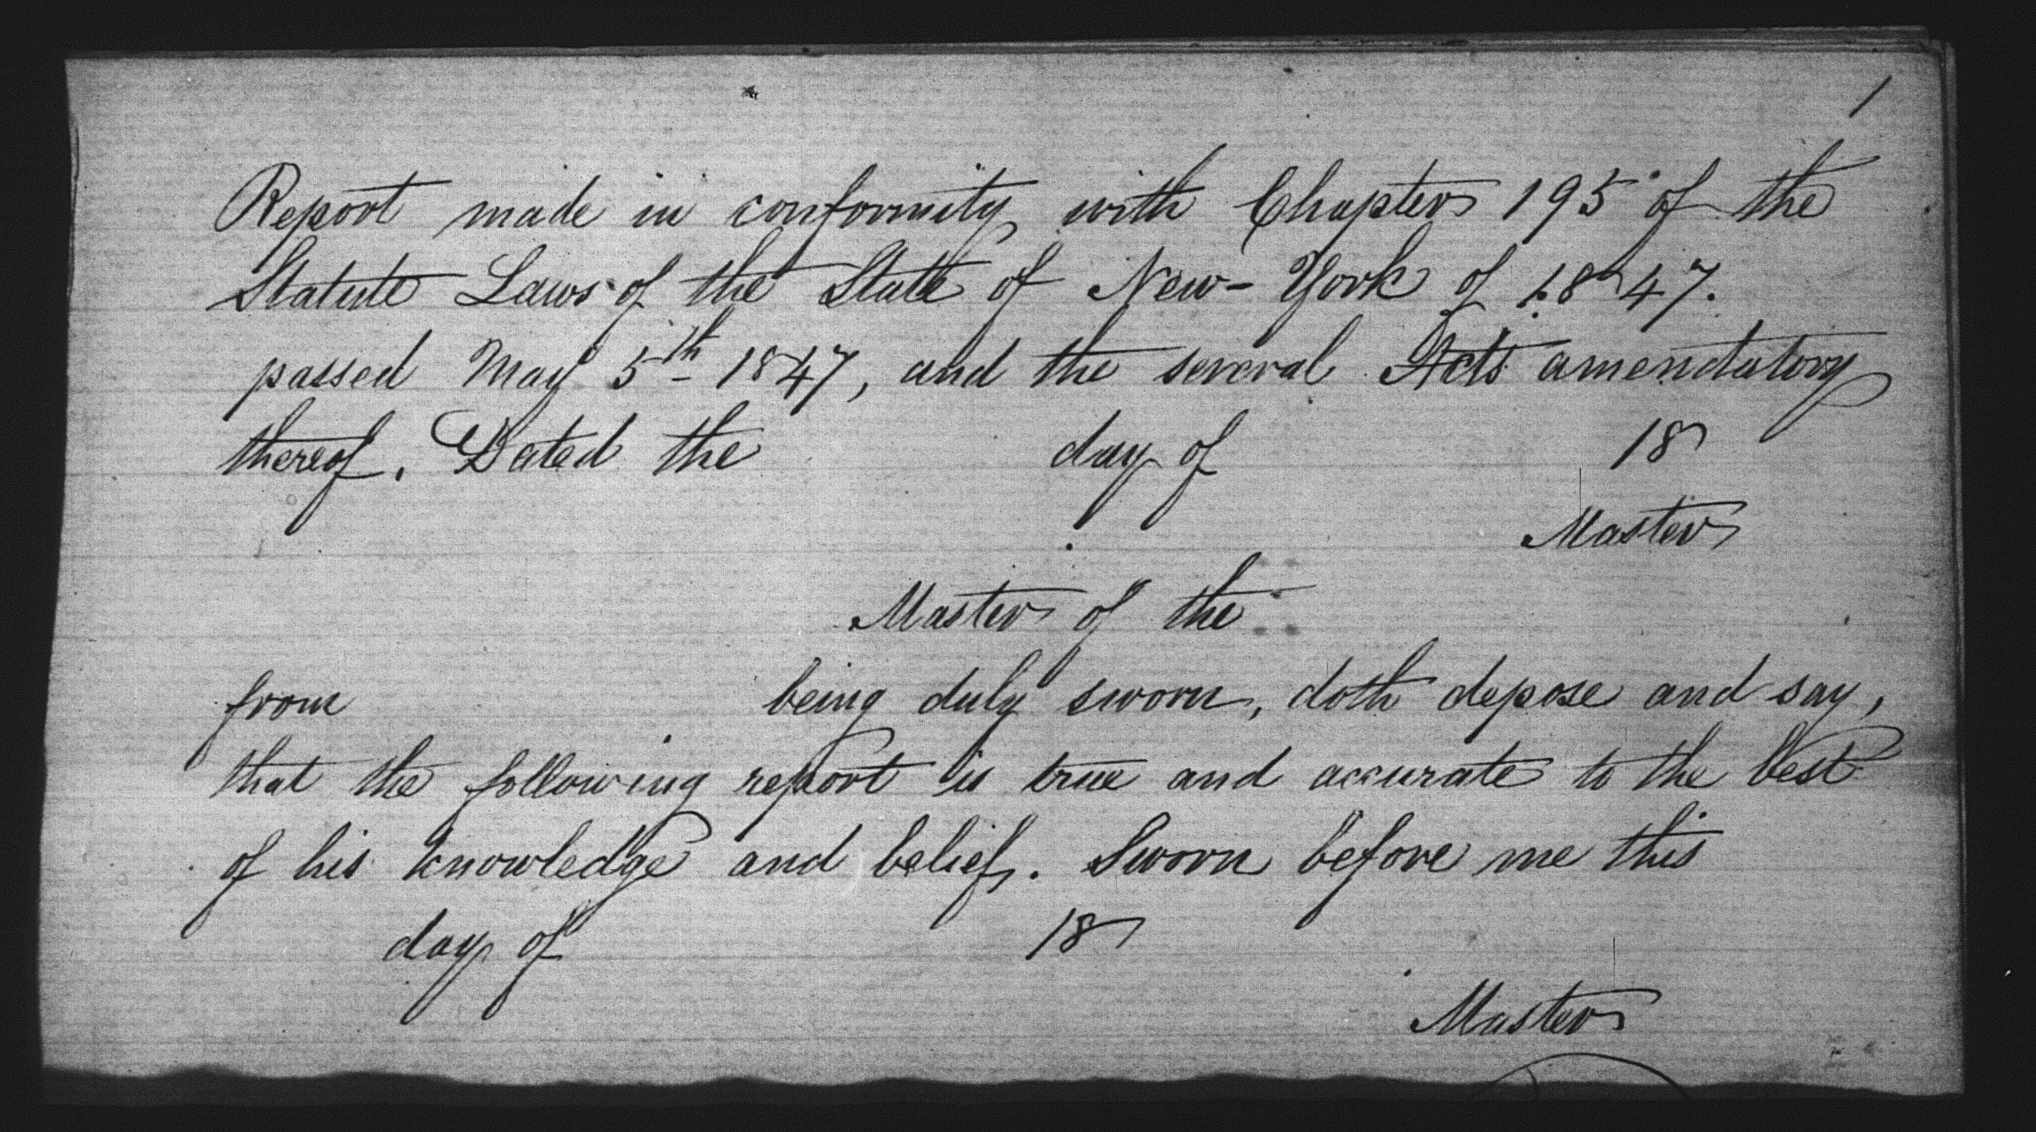 1
Report made in conformity with Chapter 195 of the
Statute Laws of the State of New-York of 1847.
passed May 5th 1847, and the several Acts amendatory
thereof. Dated the day of 18
Master
Master of the
from being duly sworn, doth depose and say,
that the following report is true and accurate to the best
of his knowledge and belief. Sworn before me this
day of 18
Master